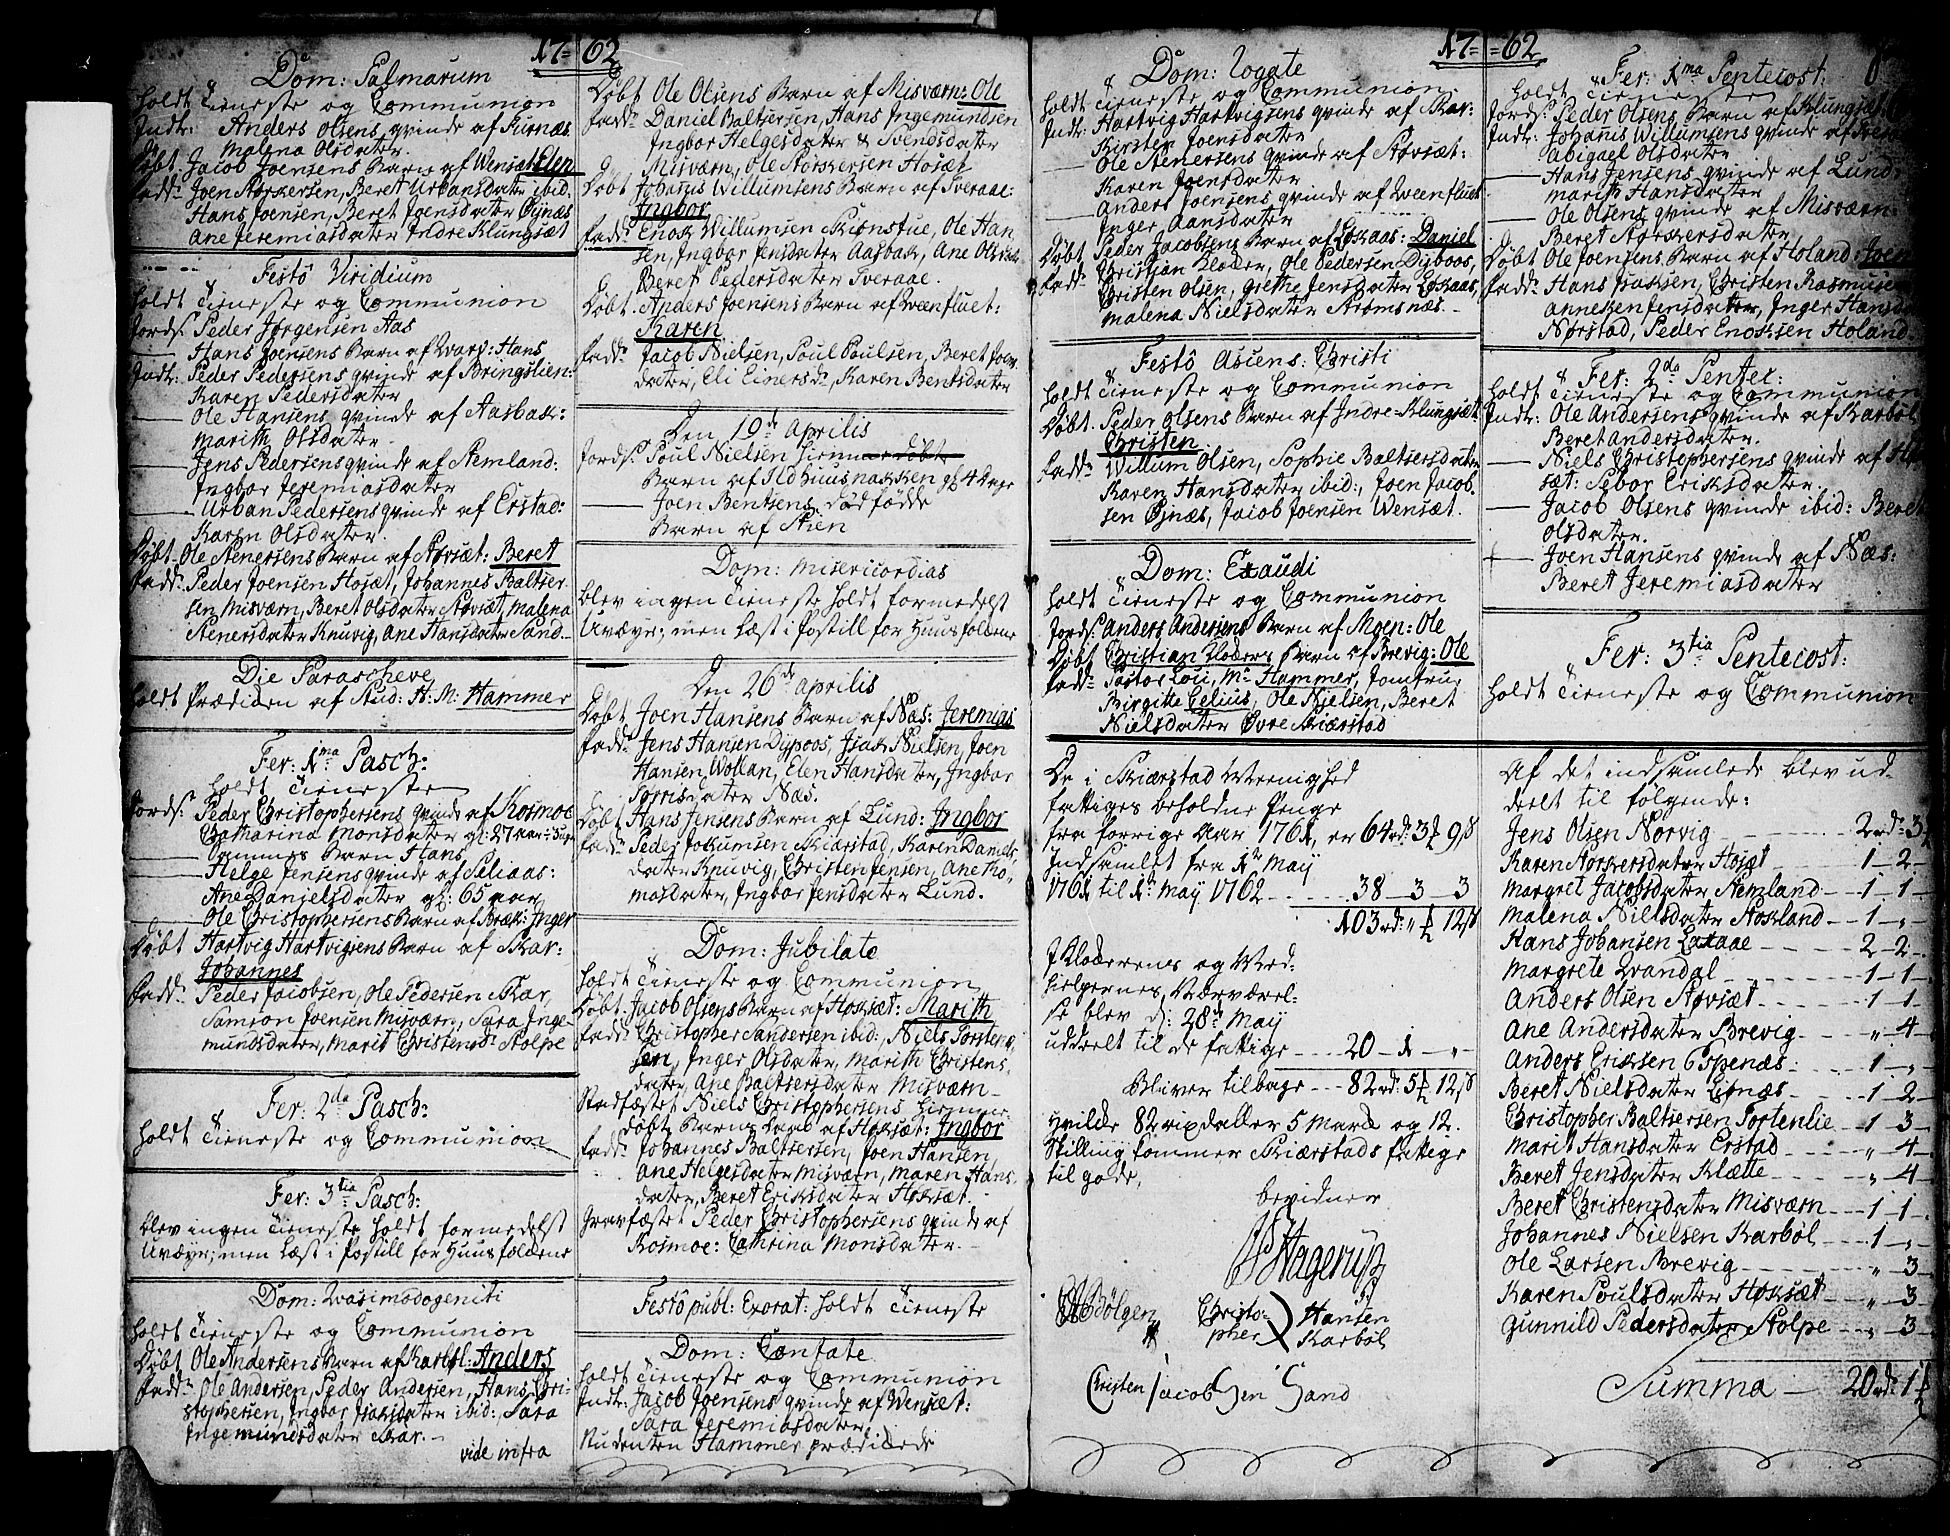 17=62
Dom: Palmarum
holdt Tieneste og Communion
Indt: Anders Olsens qvinde af Furnæs
Malena Olsdater.
Døbt Jacob Joensens Barn af Wensæt Elen
fadd: Joen Torkersen, Beret Urbansdater ibid.
Hans Joensen, Beret Joensdater Øynæs
Ane Jeremiasdater Indre Klungsæt
Festô Viridium
holdt Tieneste og Communion
Jords: Peder Jørgensen Aas
—— Hans Joensens Barn af Qvarv: Hans
Indt: Peder Pedersens qvinde af Bringslien:
Karen Pedersdater
—— Ole Hansens qvinde af Aasbak:
Marith Olsdater
—— Jens Pedersens qvinde af Stemland:
Ingbor Jeremiasdater
—— Urban Pedersens qvinde af Erstad:
Karen Olsdater.
Døbt Ole Stenersens Barn af Støvsæt: Beret
fadd: Peder Joensen Hosæt, Johannes Baltser
sen Misværn, Beret Olsdater Støvsæt, Malena
Stenersdater Knuvig, Ane Hansdater Sand
Die Parascheve
holdt Prædiken af Stud: H: M: Hammer
Fer: 1ma Pasch:
holdt Tieneste
Jords: Peder Christophersens qvinde af Kosmoe
Catharina Monsdater gl: 27 aar
—— Barn Hans
—— Helge Jensens qvinde af Seliaas:
Ane Danielsdater gl: 65 aar
—— Ole Christophersens Barn af Bræk: Inger
Døbt Hartvig Hartvigsens Barn af Skar:
Johannes
fadd: Peder Jacobsen, Ole Pedersen Skar,
Samson Joensen Misværn, Sara Inge-
mundsdater, Marit Christensdr Stolpe
Fer: 2da Pasch:
holdt Tieneste og Communion
Fer: 3tia Pasch:
blev ingen Tieneste holdt formedelst
Uveyr; men læst i Postill for Huusfolkene
Dom: Qvasimodogeniti
holdt Tieneste og Communion
Døbt Ole Andersens Barn af Karbøl: Anders
fadd: Ole Andersen, Peder Andersen, Hans Chri-
stophersen, Ingbor Isaksdater ibid:, Sara
Ingemundsdater Skar.
vide infra
Døbt Ole Olsens Barn af Misværn: Ole
fadd: Daniel Baltsersen, Hans Ingemundsen
Ingbor Helgesdater & Svendsdater
Misværn, Ole Torkersen Hosæt
Døbt Johanes Willumsens Barn af Tveraae:
Ingbor
fadd: Enok Willumsen Skionstue, Ole Han
sen, Ingbor Jensdater Aasbak, Ane Olsdater
Beret Pedersdater Tveraae.
Døbt: Anders Joensens Barn af Qvenfluet:
Karen
fadd: Jacob Nielsen, Poul Poulsen, Beret Joens
dater, Eli Einersdr, Karen Bentsdater
Den 19de Aprilis
Jords: Poul Nielsens
Barn af Ildhuusnakken gl 4 Dage
—— Joen Bentsens dødfødde
Barn af Stien
Dom: Misericordias
blev ingen Tieneste holdt formedelst
Uveyr; men læst i Postill for Huusfolkene
Den 26de Aprilis
Døbt Joen Hansens Barn af Næs: Jeremias
fadd: Jens Hansen Dypoos, Isak Nielsen, Joen
Hansen Wollan, Elen Hansdater, Ingbor
Torrisdater Næs.
Døbt Hans Jensens Barn af Lund: Ingbor
fadd: Peder Jokumsen Skiærstad, Karen Daniels
dater Knuvig, Christen Jensen, Ane Tho-
masdater, Ingbor Jensdater Lund.
Dom: Jubilate
holdt Tieneste og Communion
Døbt: Jacob Olsens Barn af Hoksæt: Marith
fadd: Christopher Sandersen ibid:, Niels Torstens-
sen, Inger Olsdater, Marith Christens-
dater, Ane Baltsersdater Misværn
Stadfæstet Niels Christophersens hiemme-
døbt Barns Daab af Hoksæt: Ingbor
fadd: Johannes Baltsersen, Joen Hansen,
Ane Helgesdater Misværn, Maren Hans-
dater, Beret Eriksdater Hoksæt.
Gravfæstet Peder Christophersens qvinde af
Kosmoe: Cathrina Monsdater.
Festô publ: Exorat: holdt Tieneste
Dom: Cantate
holdt Tieneste og Communion
Indt: Jacob Joensens qvinde af Wensæt:
Sara Jeremiasdater
Studenten Hammer prædikede
17=62
Dom: Rogate
holdt Tieneste og Communion
Indt: Hartvig Hartvigsens qvinde af Skar:
Kirsten Joensdater
—— Ole Stenersens qvinde af Støvsæt:
Karen Joensdater
—— Anders Joensens qvinde af Qvenfluet
Inger Aansdater
Døbt Peder Jacobsens Barn af Løkaas: Daniel
fadd: Christian Klocker, Ole Pedersen Dypoos,
Christen Olsen, Grethe Jensdater Løkaas,
Malena Nielsdater Strømsnæs.
Festô Ascens: Christi
holdt Tieneste og Communion
Døbt Peder Olsens Barn af Indre Klungsæt
Christen
fadd: Willum Olsen, Sophie Baltsersdater
Karen Hansdater ibid:, Joen Jacob-
sen Øjnæs, Jacob Joensen Wensæt.
Dom: Exaudi
holdt Tieneste og Communion
Jords: Anders Andersens Barn af Moen: Ole
Døbt Christian Klockers Barn af Brevig: Ole
fadd: Pastor Loci, Mr Hammer, Jomfrue
Birgitte Celius, Ole Nielsen, Beret
Nielsdater Øvre Skiærstad
De i Skiærstad Meenighed
fattiges beholdne Penge
fra forrige Aar 1761, er 64 rd: 3 ½ 9 β
Indsamlet fra 1te May
1761 til 1te May 1762 - - - 38 - 3 - 3
103 rd: „ ½ 12 β
I Klockerens og Med-
hielpernes Nærværel-
se blev d: 28de May
uddeelt til de fattige - - - 20 - 1 - „ -
Bliver tilbage - - - 82 rd: 5 ½ 12 β
Hvilke 82 rixdaller 5 Mark og 12.
Skilling kommer Skiærstads fattige
til gode,
bevidner
Hagerup
Bølgen
Christo-
pher Hansen
Karbøl
Christen Jacob Sen Sand
Fer: 1ma Pentecost:
holdt Tieneste
Jords: Peder Olsens Barn af Klungsæt
Indt: Johanes Willumsens qvinde af
Abigael Olsdater
—— Hans Jensens qvinde af Lund:
Marith Hansdater
—— Ole Olsens qvinde af Misværn:
Beret Torkersdater
Døbt Ole Joensens Barn af Holand: Joen
fadd: Hans Isaksen, Christen Rasmusen
Anneken Jensdater, Inger Hansdater
Nørstad, Peder Enoksen Holand
Fer: 2da Pentec:
holdt Tieneste og Communion
Indt: Ole Andersens qvinde af Karbøl
Beret Andersdater.
—— Niels Christophersens qvinde af Hok
sæt: Sebor Eriksdater.
—— Jacob Olsens qvinde ibid: Beret
Olsdater.
—— Joen Hansens qvinde af Næs:
Beret Jeremiasdater
Fer: 3tia Pentecost:
holdt Tieneste og Communion
Af det indsamlede blev ud-
deelt til følgende:
Jens Olsen Norvig - - - 2 rd: 3
Karen Torkersdater Hosæt - 1 - 2 -
Margret Jacobsdater Stemland - 1 - 1 -
Malena Nielsdater Stokland - 1 - „ -
Hans Johansen Laxaae - - 2 - 2 -
Margrete Qvandal - - - 1 - 1 -
Anders Olsen Støvsæt - - - 1 - 1 -
Ane Andersdater Brevig - - „ - 4 -
Anders Eriksen Espenæs - - 1 - „ -
Beret Nielsdater Leknæs - - 1 - 2 -
Christopher Baltsersen Tortenlie - 1 - 3 -
Marit Hansdater Erstad - - „ - 4 -
Beret Jensdater Klætte - - „ - 4 -
Beret Christensdater Misværn - 1 - 1 -
Johannes Nielsen Karbøl - 1 - „ -
Ole Larsen Brevig - - - „ - 3 -
Karen Poulsdater Hoksæt - „ - 3 -
Gunnild Pedersdater Stolpe - „ - 3 -
Summa — 20 rd: 1 ½